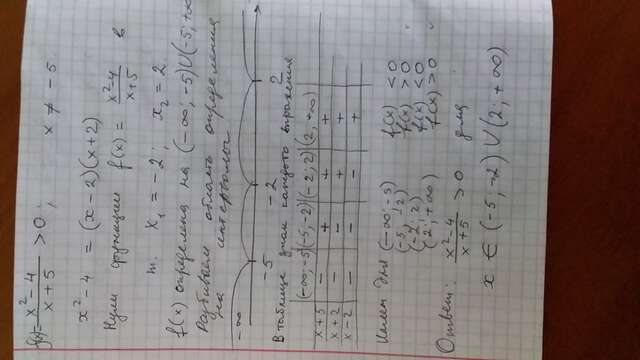 f(x)= x²-4 / x+5 > 0 ; x ≠ -5
x²-4 = (x-2)(x+2)
Нули функции f(x) = x²-4 / x+5 в
т. x₁ = -2; x₂ = 2
f(x) определена на (-∞; -5)∪(-5; +∞
Разбиваем область определения
на интервалы
-∞
-5 -2 2
В таблице знак каждого выражения
(-∞; -5) (-5, -2) (-2; 2) (2, +∞)
x+5 - + + +
x+2 - - + +
x-2 - - - +
Имеем для (-∞; -5) f(x) < 0
(-5, -2) f(x) > 0
(-2, 2) f(x) < 0
(2; +∞) f(x) > 0
Ответ: x²-4 / x+5 > 0 для
x ∈ (-5; -2) ∪ (2; +∞)